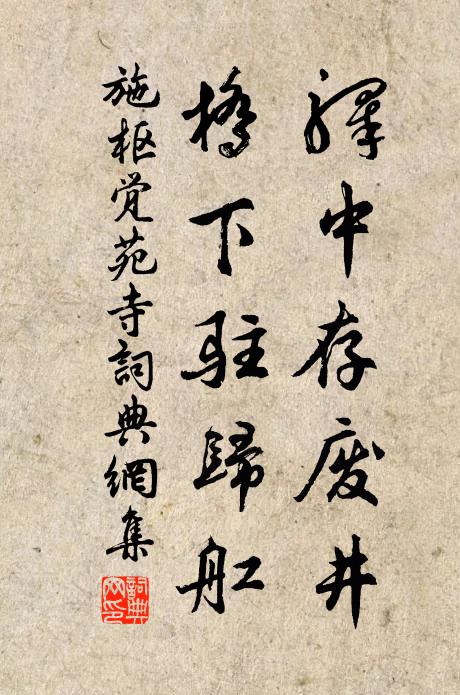 驛中存废井
橋下驻歸舡
施枢觉苑寺詞典網集
詞典网印